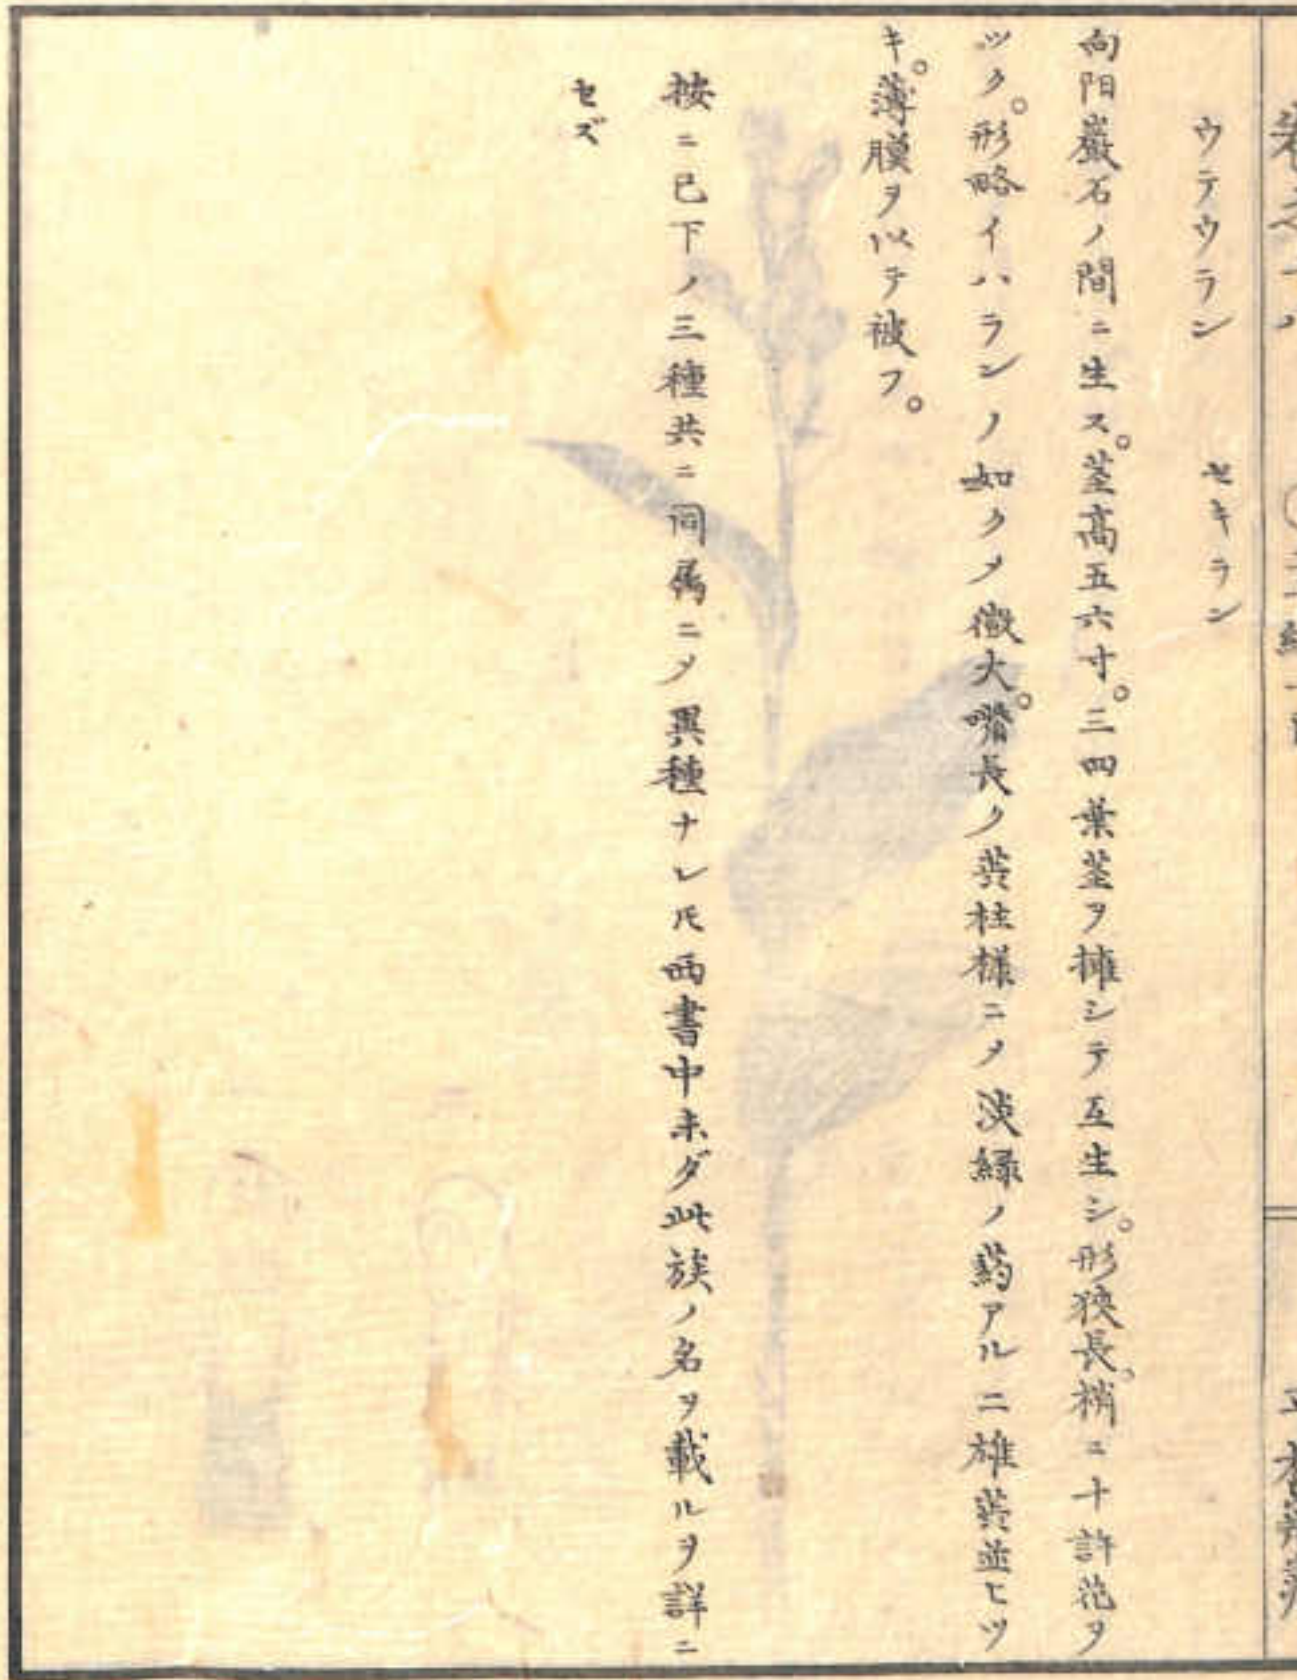 ウテウラン セキラン
向陽巌石ノ間ニ生ス。茎高五六寸。三四葉茎ヲ擁シテ互生シ。形狹長、梢ニ十許花ヲ
ツク。形略イハランノ如クメ微大。嘴長ク蘂柱様ニメ淡緑ノ葯アルニ雄蘂並ヒツ
キ。薄膜ヲ以テ被フ。
按ニ已下ノ三種共ニ同属ニメ異種ナレ𪜈西書中未ダ此族ノ名ヲ載ルヲ詳ニ
セズ